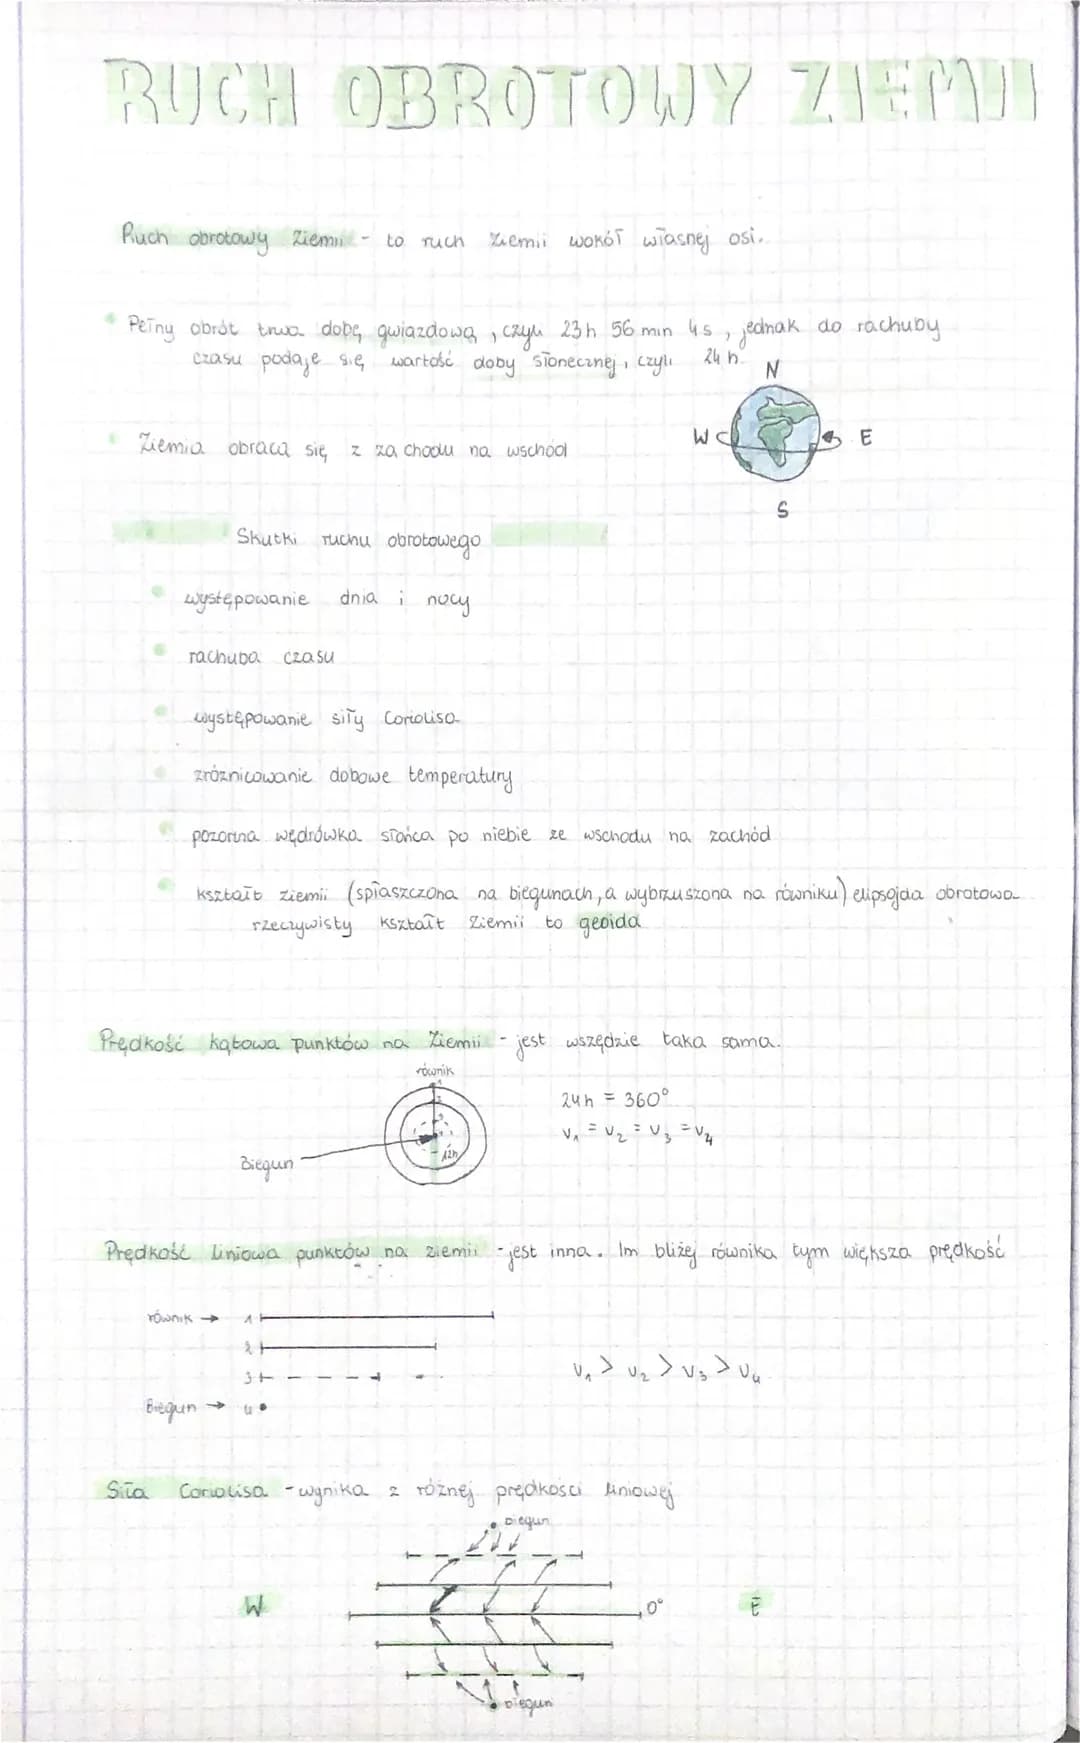 RUCH OBROTOWY ZIEMII
Ruch obrotowy Ziemii - to ruch Ziemii wokół własnej osi.
Pełny obrót trwa dobę gwiazdową, czyli 23h 56 min 4s, jednak do rachuby
czasu podaje się wartość doby słonecznej, czyli 24 h.
N
Ziemia obraca się z zachodu na wschód
W E
S
Skutki ruchu obrotowego
występowanie dnia i nocy
rachuba czasu
występowanie siły Coriolisa
zróżnicowanie dobowe temperatury
pozorna wędrówka słońca po niebie ze wschodu na zachód
kształt ziemii (spłaszczona na biegunach, a wybrzuszona na równiku) elipsojda obrotowa
rzeczywisty kształt Ziemii to geoida
Prędkość kątowa punktów na Ziemii - jest wszędzie taka sama.
równik
24h = 360°
v₁ = v₂ = v₃ = v₄
12h
Biegun
Prędkość liniowa punktów na ziemii - jest inna. Im bliżej równika tym większa prędkość
równik → 1
2
3
v₁ > v₂ > v₃ > v₄
Biegun → 4
Siła Coriolisa - wynika z różnej prędkości liniowej
biegun
W 0° E
biegun